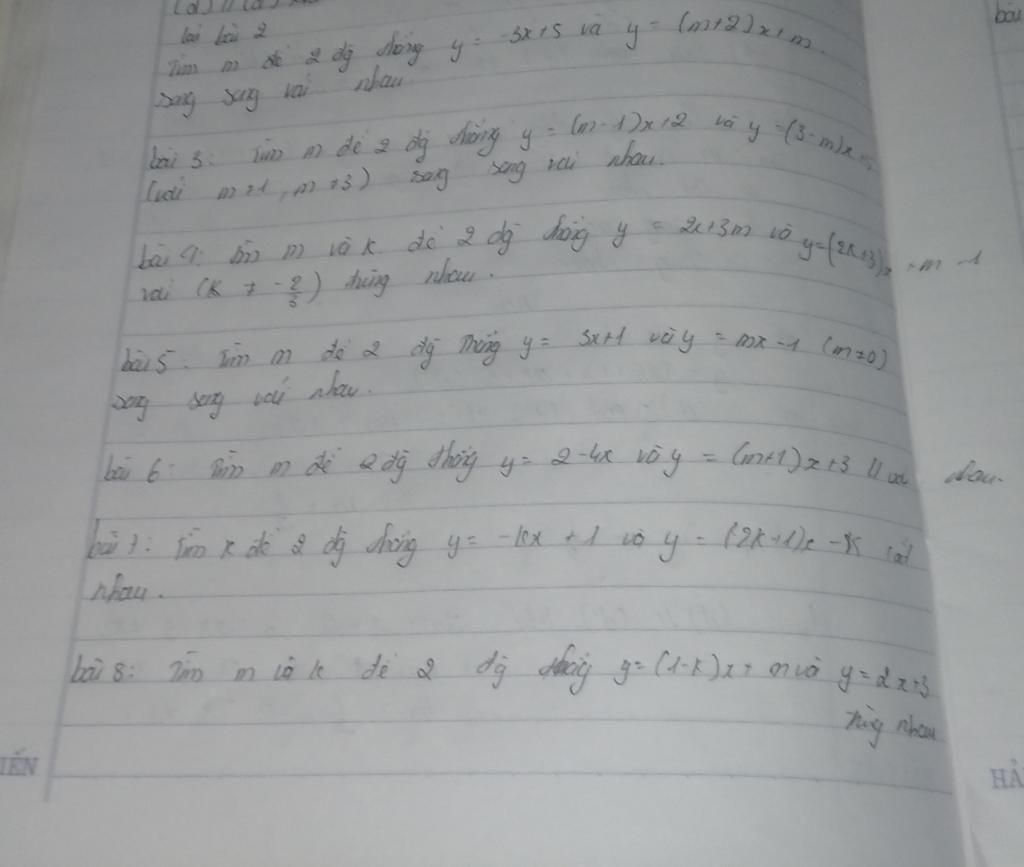 bài
bài 2
Tìm m để 2 đg thẳng y = -3x+5 và y = (m+2)x+m.
song song với nhau
bài 3: Tìm m để 2 đg thẳng y = (m-1)x+2 và y =(3-m)x
(với m≠1, m≠3) song song với nhau.
bài 4: tìm m và k để 2 đg thẳng y = 2x+3m và y=(2k+3)x +m -1
với (k ≠ -) trùng nhau.
bài 5: Tìm m để 2 đg thẳng y = 3x+1 và y = mx-1 (m≠0)
song song với nhau.
bài 6: Tìm m để 2 đg thẳng y= 2-4x và y = (m+1)x+3 // với nhau.
bài 7: Tìm k để 2 đg thẳng y= -kx +1 và y = (2k+1)x - cắt
nhau.
bài 8: Tìm m và k để 2 đg thẳng y=(1-k)x+ m và y=2x+3
trùng nhau
IẾN
HẢ